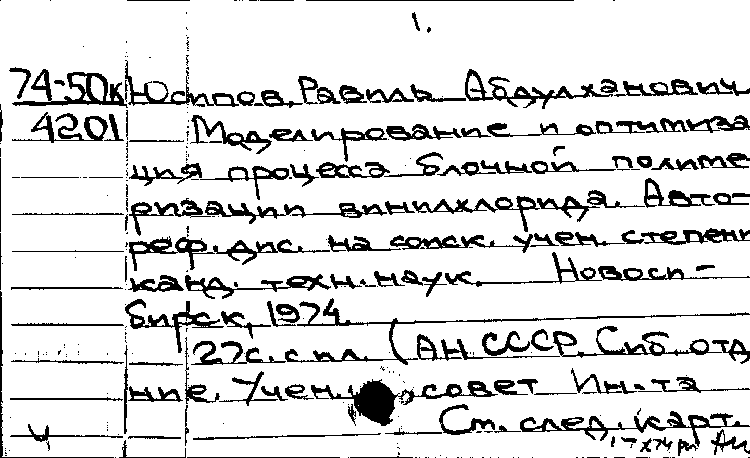 1.
74-50к Юсипов, Равиль Абдулханович
4201 Моделирование и оптимиза
ция процесса блочной полиме
ризации винилхлорида. Авто-
реф. дис. на соиск. учен. степени
канд. техн. наук. Новоси-
бирск, 1974.
27с. с ил. (АН СССР. Сиб. отд
ние. Учен. совет Ин-та
См. след. карт.
ч